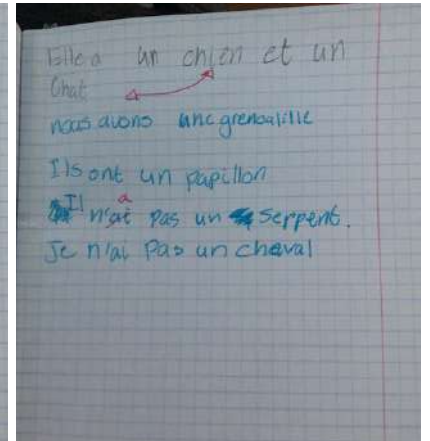 Elle a un chien et un
Chat
nous avons une grenoalille
Ils ont un papillon
a
Il n'at pas un serpent.
Je n'ai pas un chaval